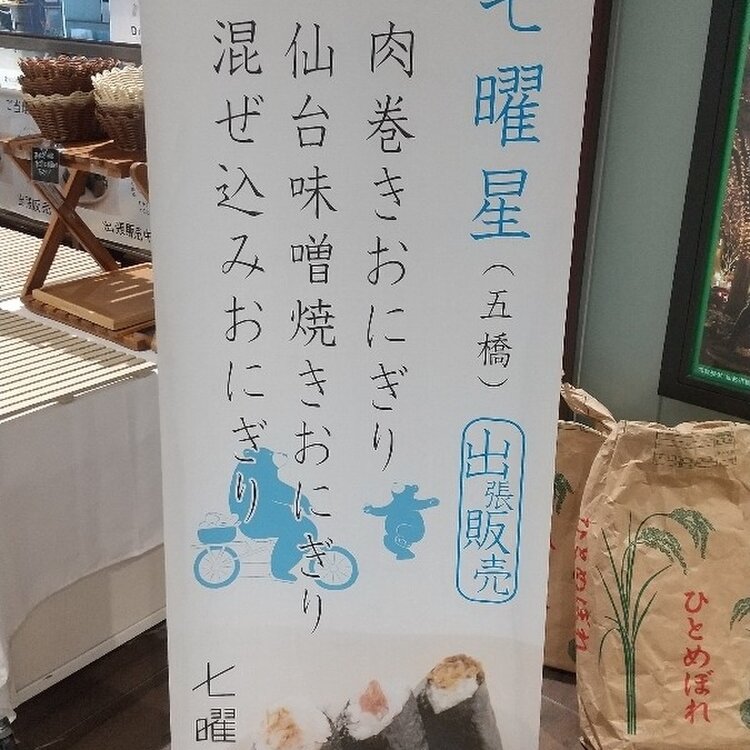 七曜星（五橋）
出張販売
肉巻きおにぎり
仙台味噌焼きおにぎり
混ぜ込みおにぎり
七曜
ひとめぼれ
ひとめぼれ
出張販売
出張販売中